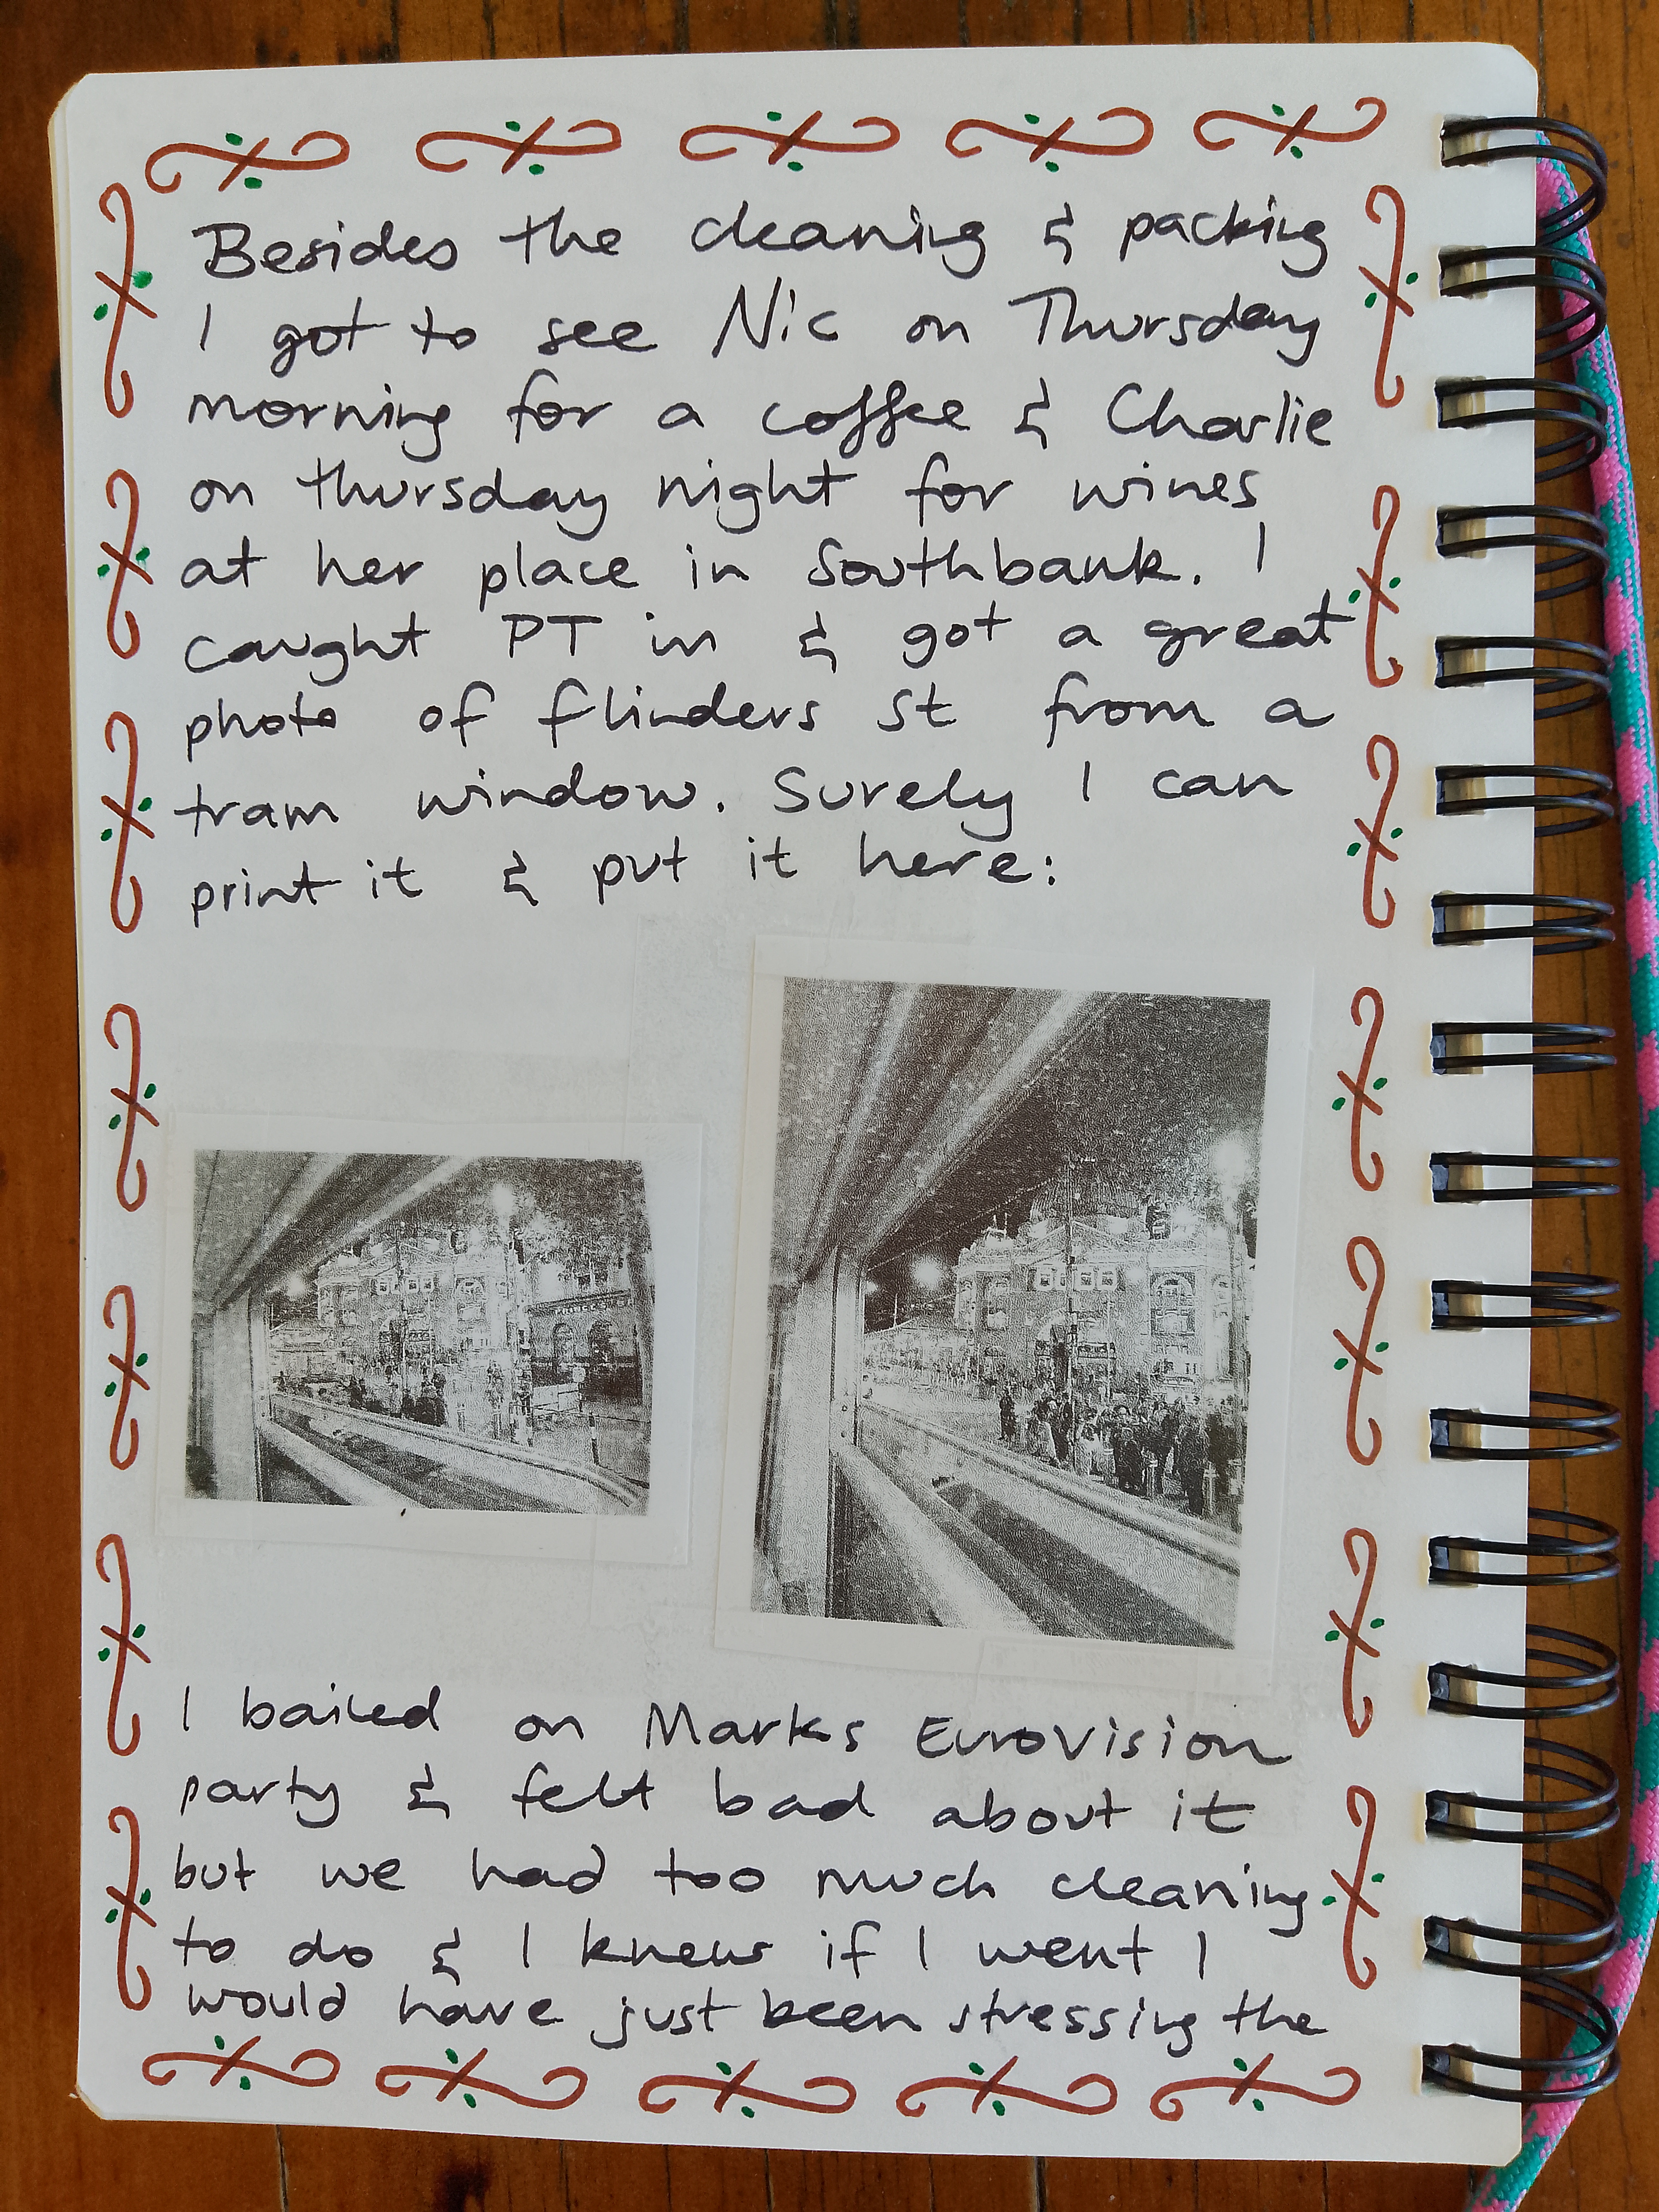 Besides the cleaning & packing
I got to see Nic on Thursday
morning for a coffee & Charlie
on thursday night for wines
at her place in Southbank. I
caught PT in & got a great
photo of flinders St from a
tram window. Surely I can
print it & put it here:
I bailed on Marks Eurovision
party & felt bad about it
but we had too much cleaning
to do & I knew if I went I
would have just been stressing the